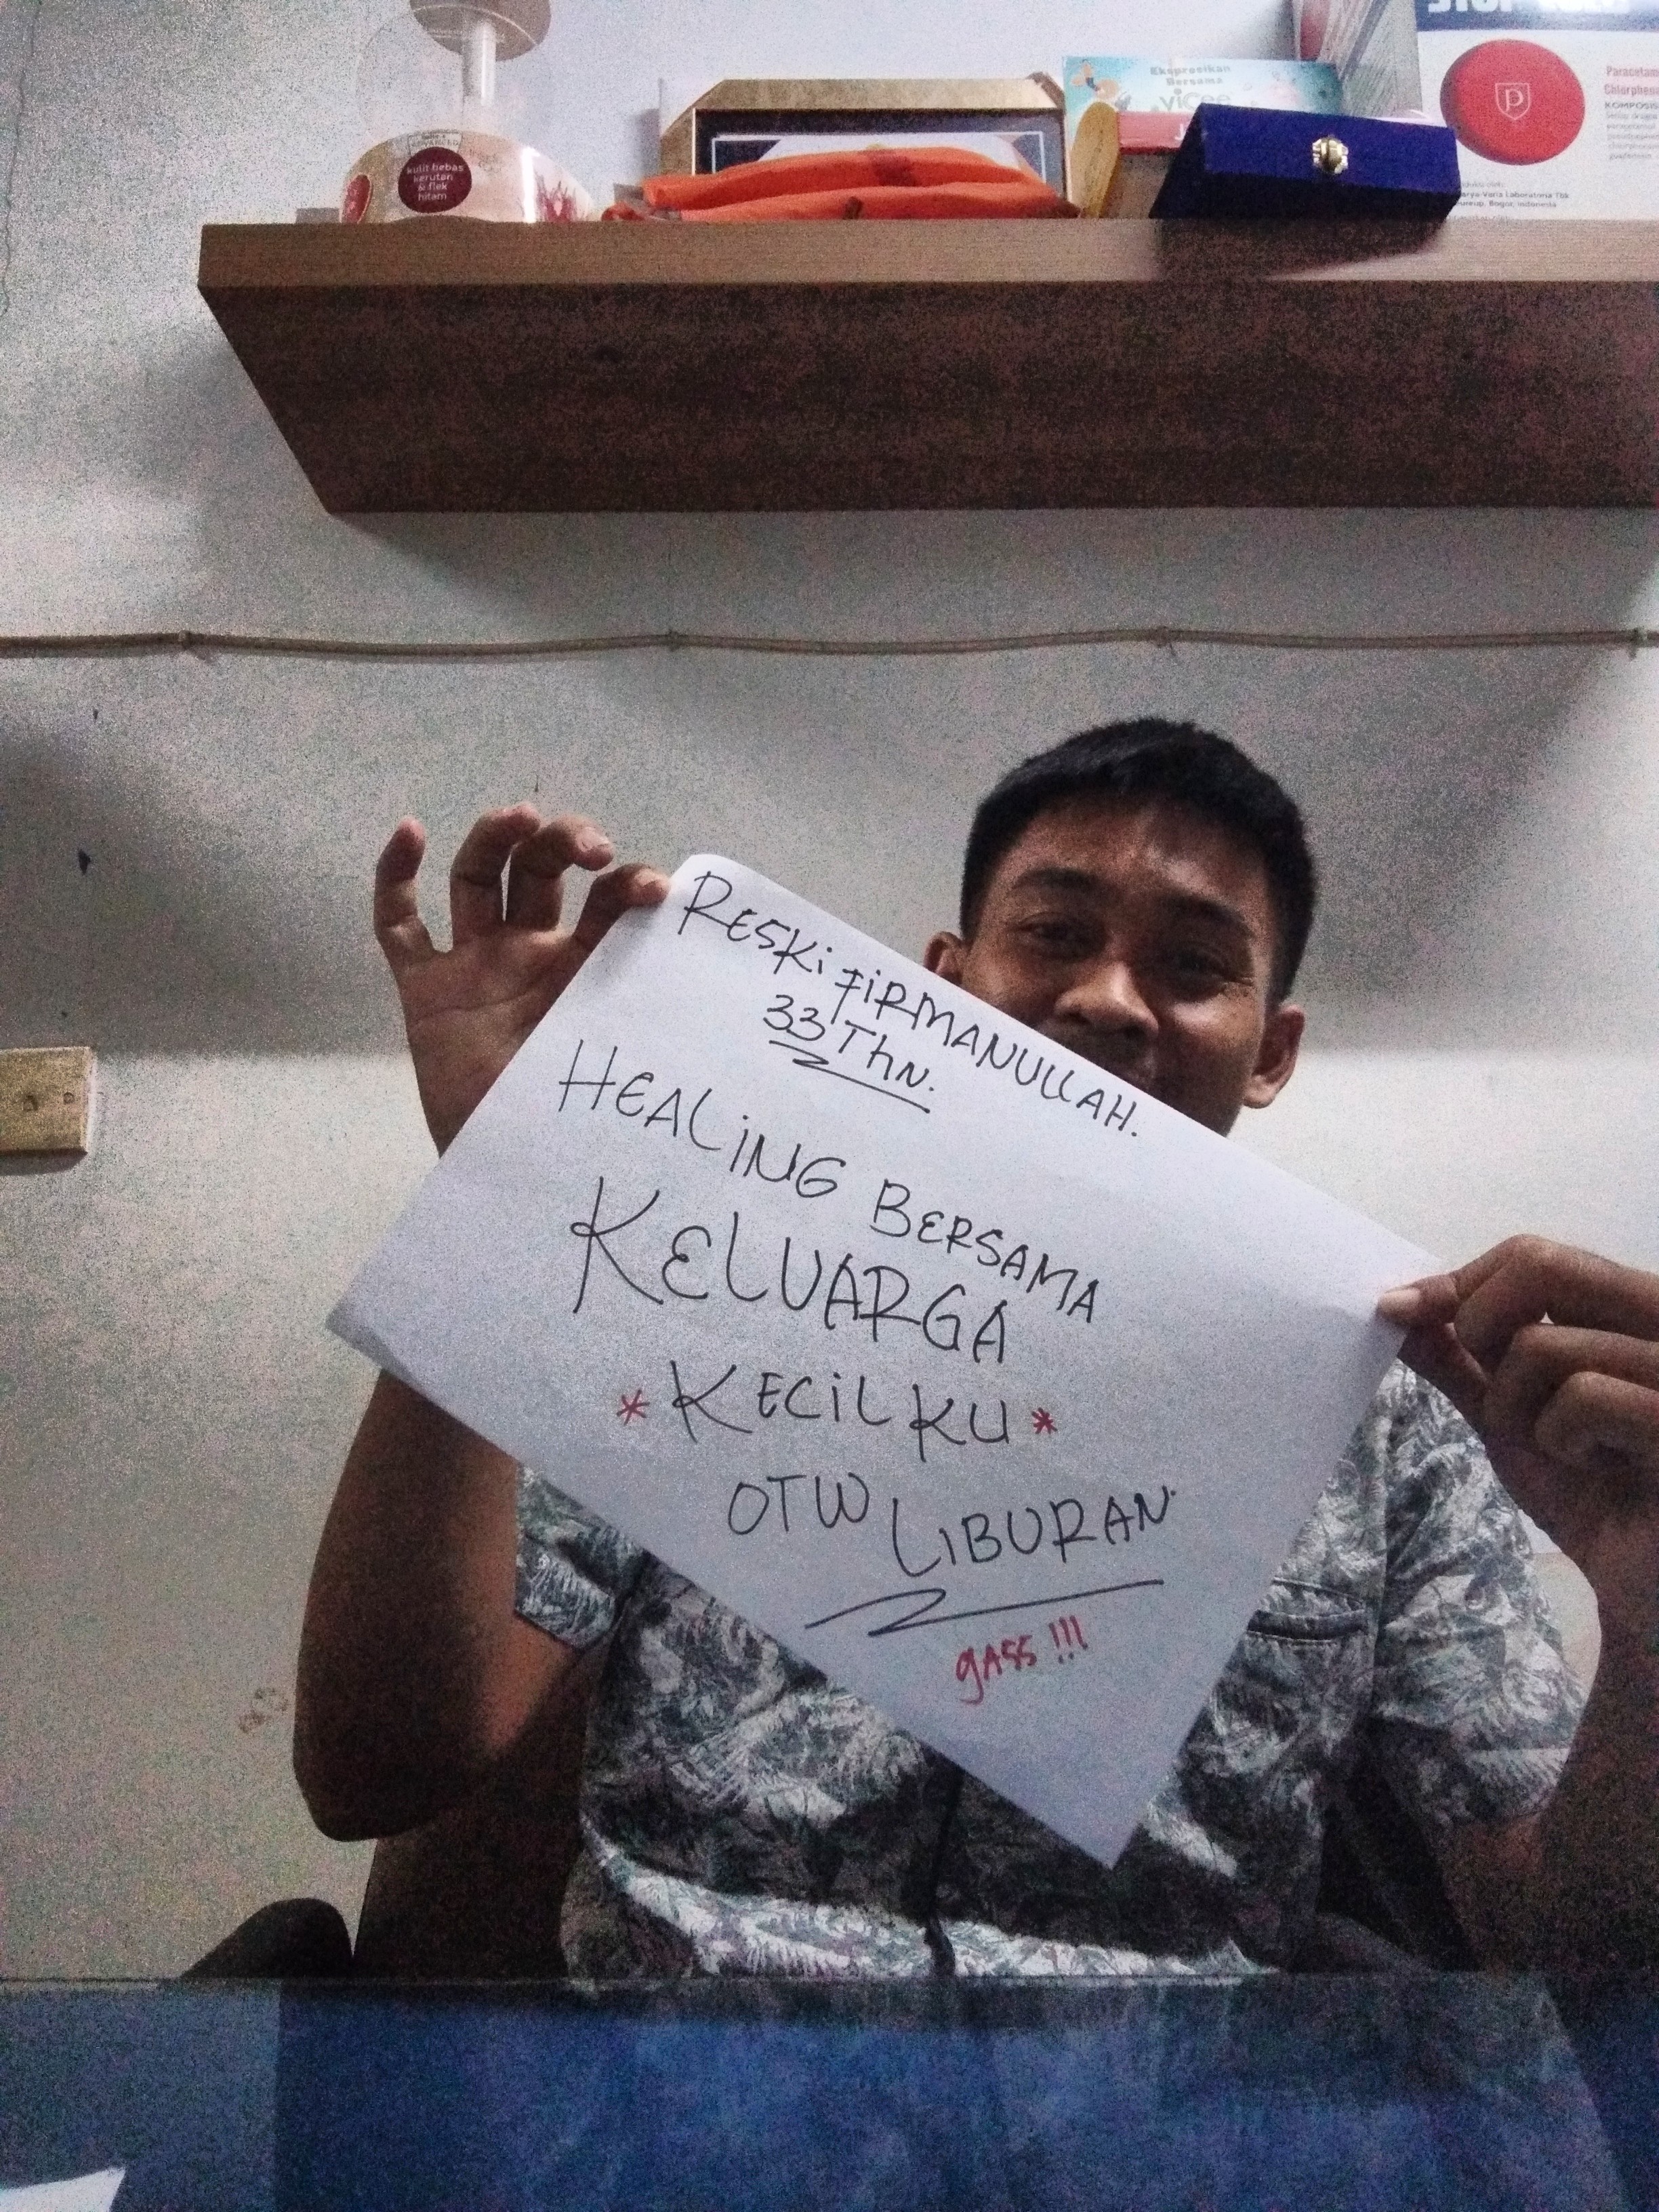 kulit bebas
kerutan
& flek
hitam
Ekspresikan
Bersama
Paracetam
Chlorphena
KOMPOSIS
Bogor, Indonesia
RESKi FiRMANULLAH.
33 Thn.
HEALiNG BERSAMA
KELUARGA
* KECiL KU *
OTW LiBURAN
gASS !!!